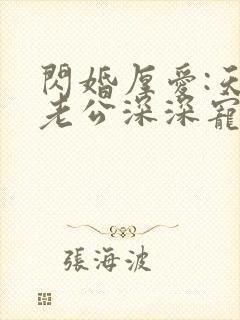 閃婚厚愛:天
老公深深寵
張海波